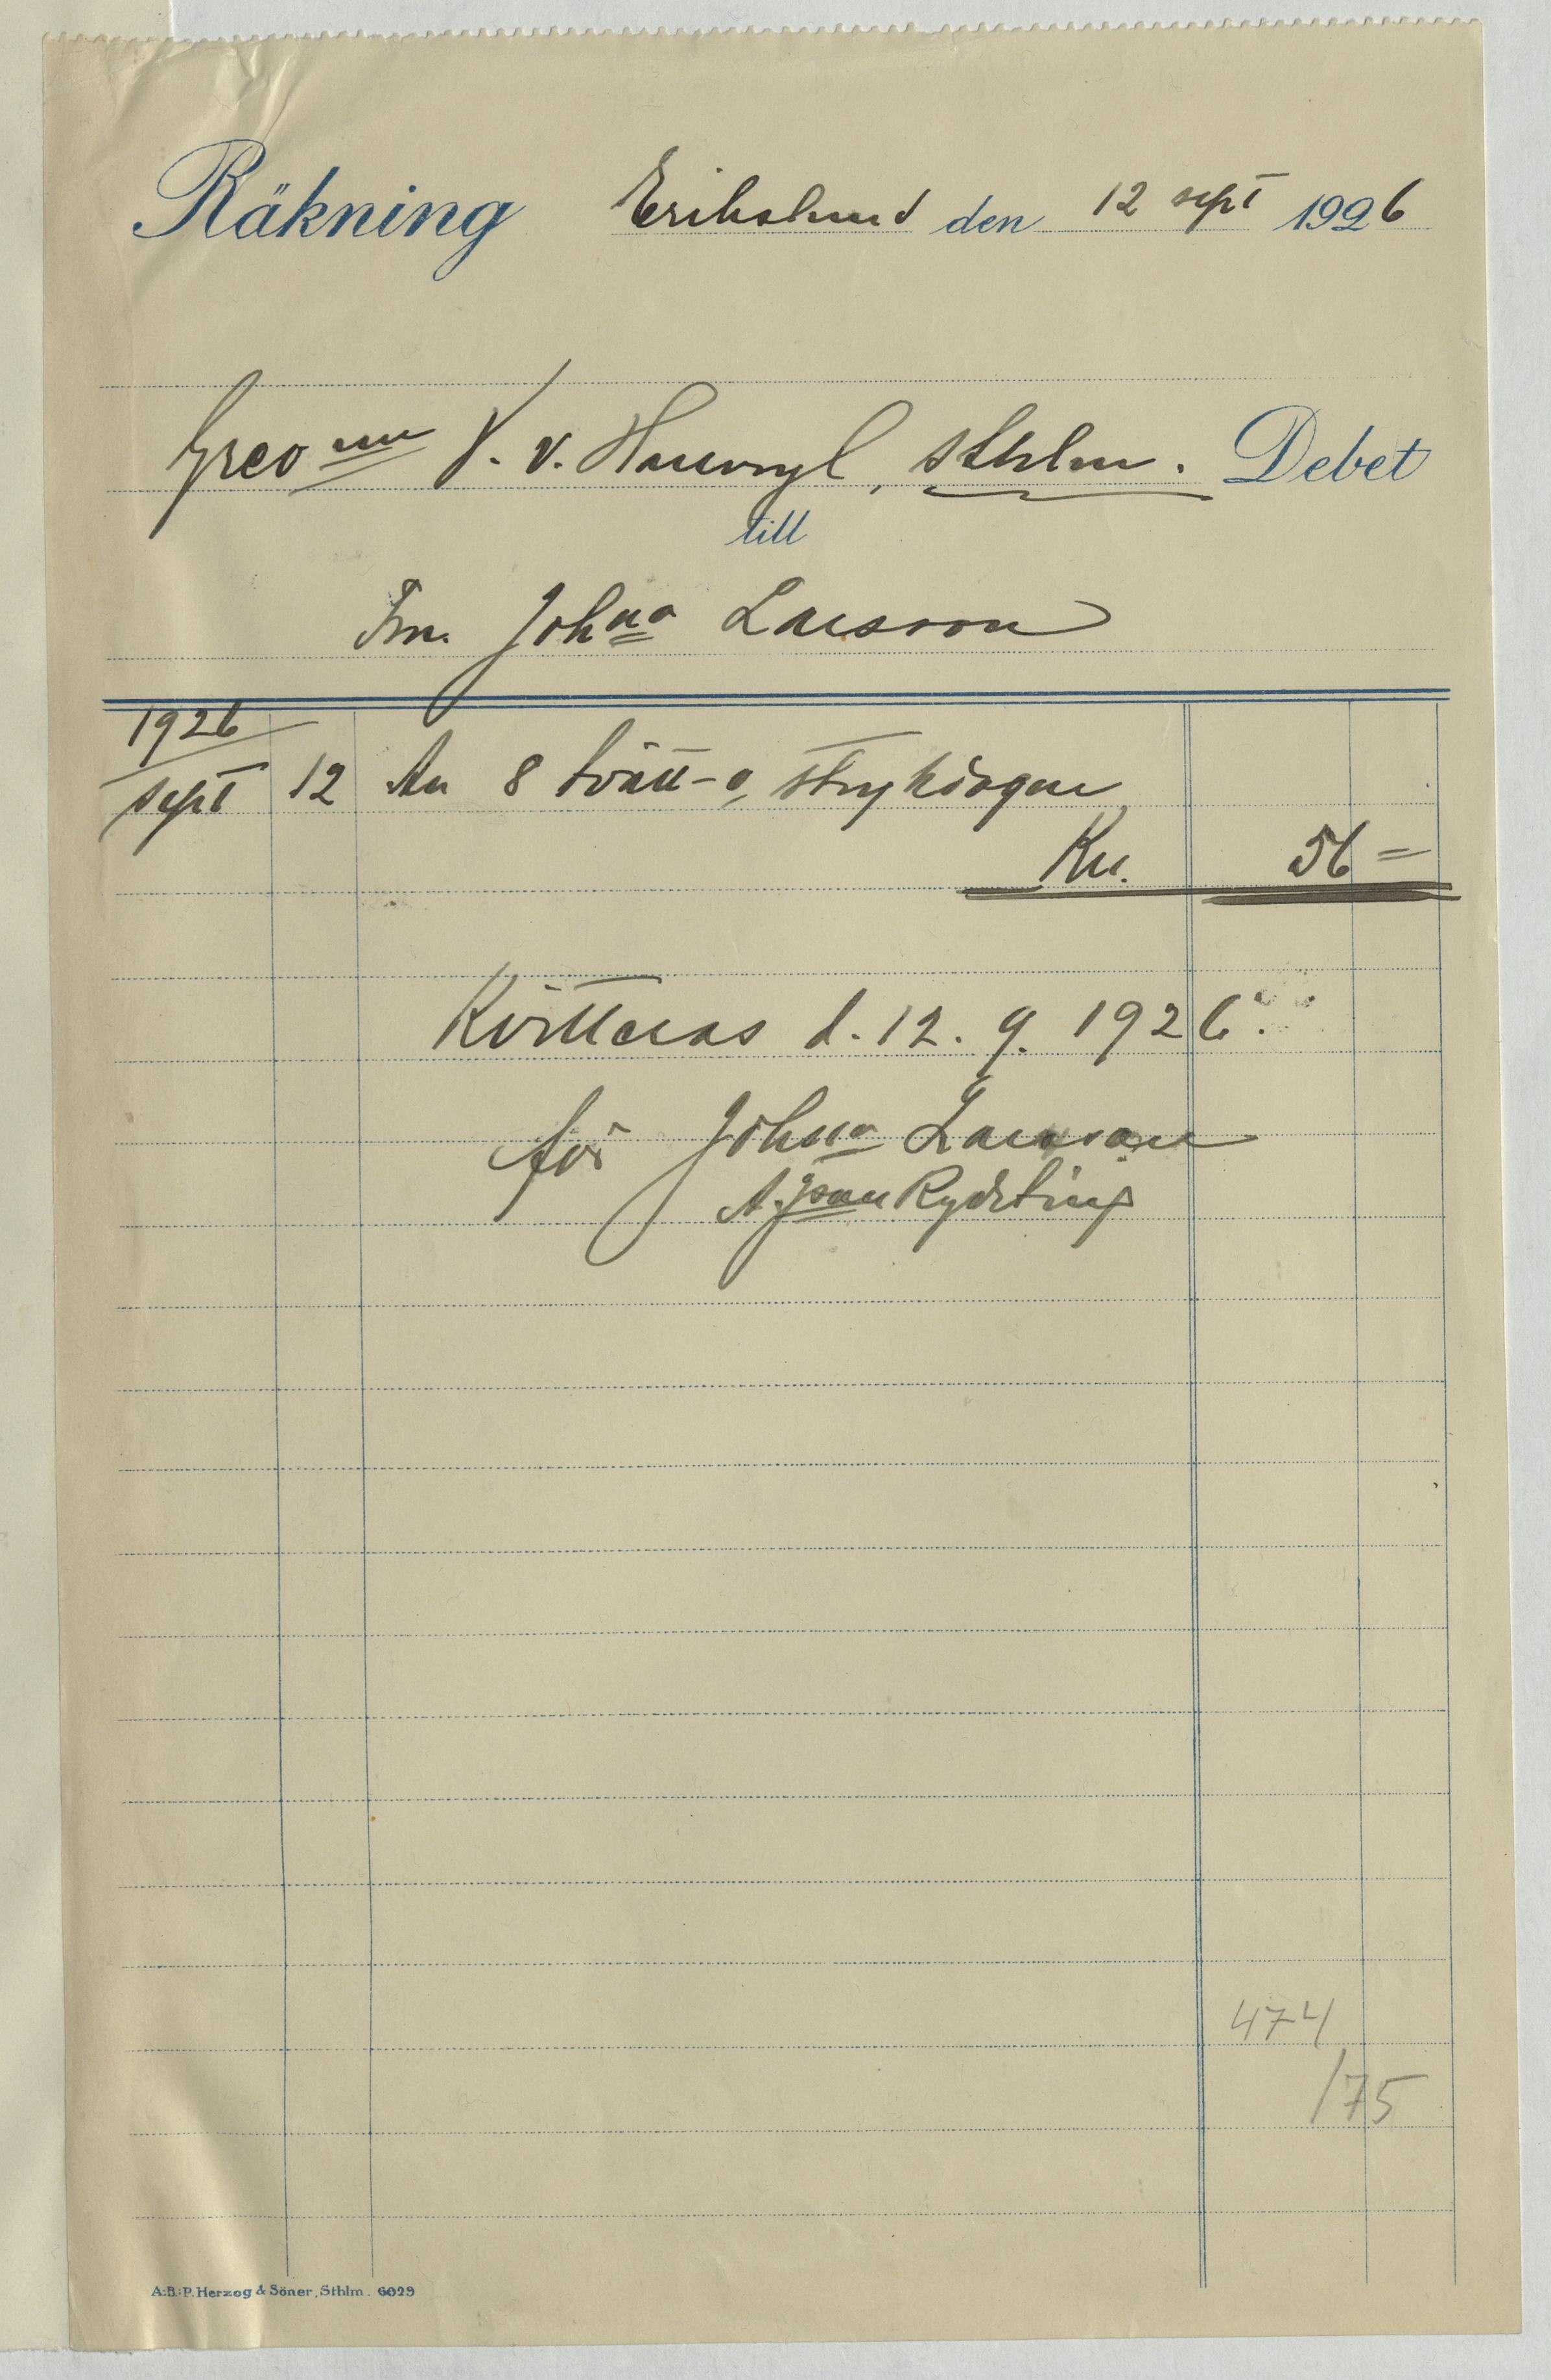 Räkning Erikslund den 12 sept 1926
Grevinn V. v. Hallwyl, Sthlm. Debet
till
Frn. Johna Larsson
1926
sept 12 An 8 tvätt- o, strykdagar
Kr. 56 =
Kvitteras d. 12. 9. 1926.
för Johna Larsson
A. Json Rydting
474
/75
A:B:P. Herzog & Söner, Sthlm. 6029